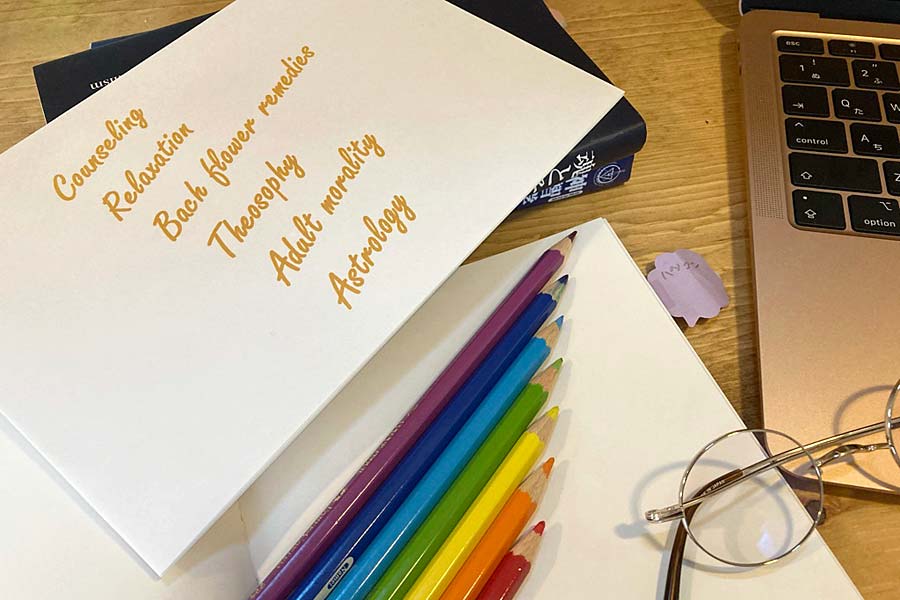 Counseling
Relaxation
Bach flower remedies
Theosophy
Adult morality
Astrology
esc
1 ! ぬ
2 " ふ
Q た
W
control
A ち
Z
option